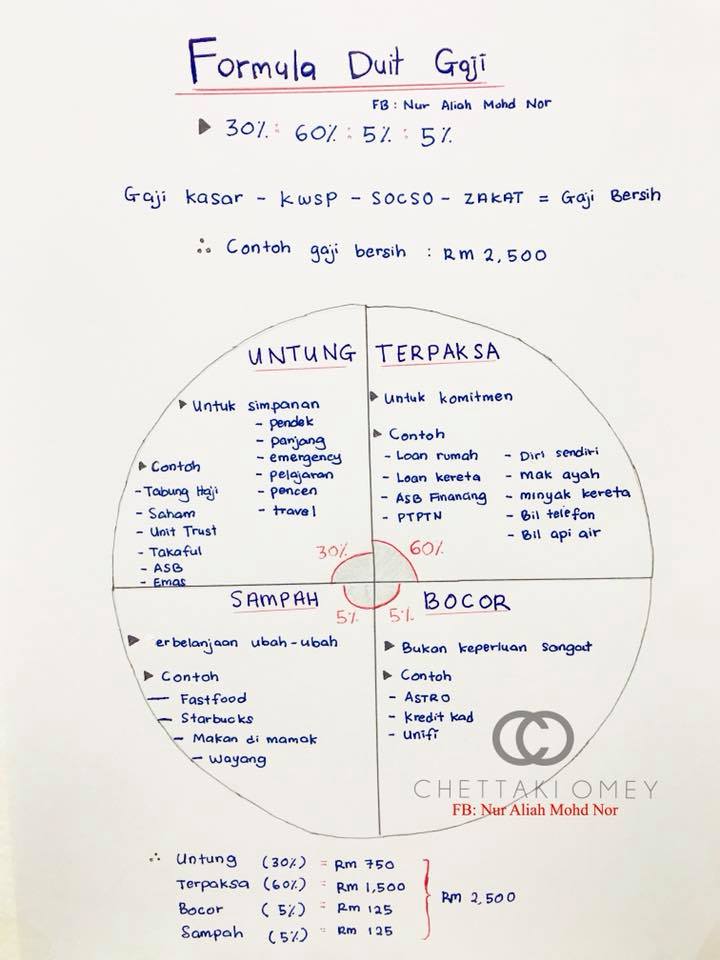 Formula Duit Gaji
FB: Nur Aliah Mohd Nor
30% : 60% : 5% : 5%
Gaji kasar - KWSP - SOCSO - ZAKAT = Gaji Bersih
∴ Contoh gaji bersih : Rm 2,500
UNTUNG
Untuk simpanan
- pendek
- panjang
- emergency
- pelajaran
- pencen
- travel
Contoh
- Tabung Haji
- Saham
- Unit Trust
- Takaful
- ASB
- Emas
30%
TERPAKSA
Untuk komitmen
Contoh
- Loan rumah
- Loan kereta
- ASB Financing
- PTPTN
- Diri sendiri
- mak ayah
- minyak kereta
- Bil telefon
- Bil api air
60%
SAMPAH
5%
erbelanjaan ubah-ubah
Contoh
- Fastfood
- Starbucks
- Makan di mamak
- Wayang
BOCOR
5%
Bukan keperluan sangat
Contoh
- ASTRO
- Kredit kad
- Unifi
CHETTAKI OMEY
FB: Nur Aliah Mohd Nor
∴ Untung (30%) = Rm 750
Terpaksa (60%) = Rm 1,500
Bocor (5%) = Rm 125
Sampah (5%) = Rm 125
Rm 2,500